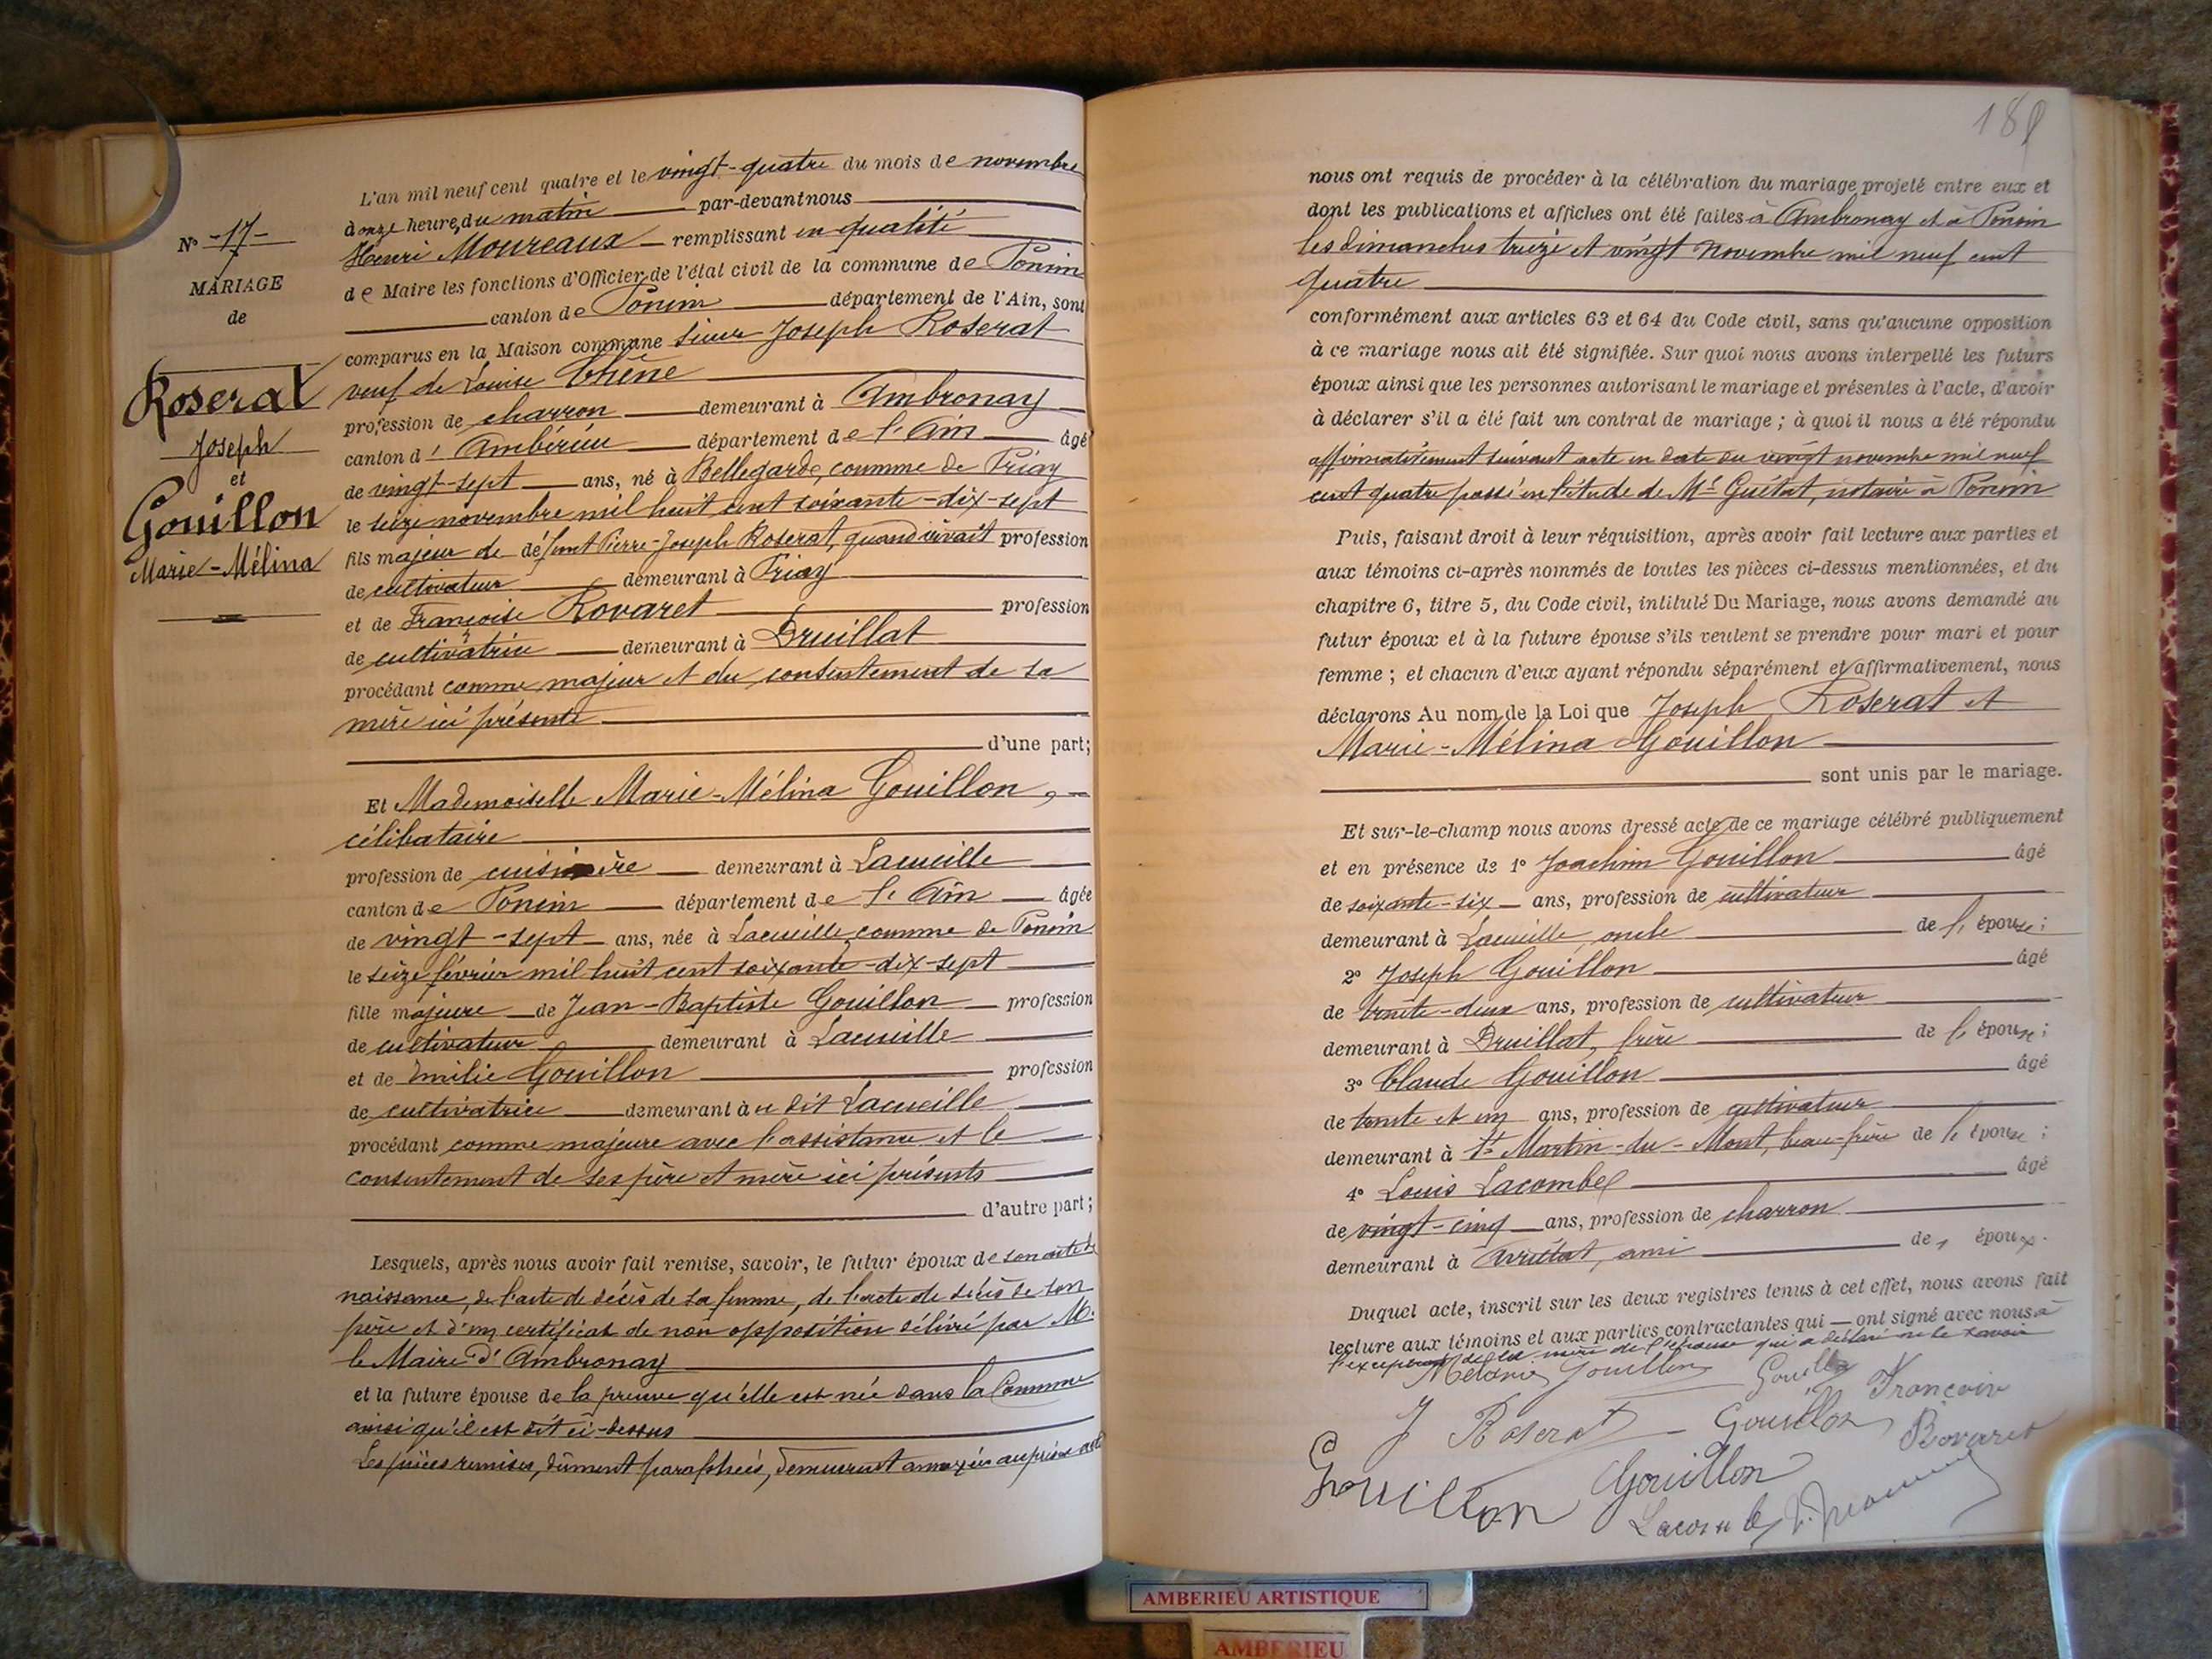 N° -17-
MARIAGE
de
Roserat
Joseph
et
Gouillon
Marie-Mélina
L'an mil neuf cent quatre et le vingt-quatre du mois de novembre
à onze heures du matin par-devant nous
Henri Moureaux remplissant en qualité
de Maire les fonctions d'Officier de l'état civil de la commune de Poncin
canton de Poncin département de l'Ain, sont
comparus en la Maison commune sieur Joseph Roserat
veuf de Louise Chêne
profession de charron demeurant à Ambronay
canton d' Ambérieu département de l'Ain âgé
de vingt-sept ans, né à Bellegarde, comme de Priay
le seize novembre mil huit cent soixante-dix-sept
fils majeur de défunt Pierre-Joseph Roserat, quand vivait profession
de cultivateur demeurant à Priay
et de Françoise Rovaret profession
de cultivatrice demeurant à Druillat
procédant comme majeur et du consentement de sa
mère ici présente
d'une part;
Et Mademoiselle Marie-Mélina Gouillon,
célibataire
profession de cuisinière demeurant à Lacueille
canton de Poncin département de l'Ain âgée
de vingt-sept ans, née à Lacueille, comme de Poncin
le seize février mil huit cent soixante-dix-sept
fille majeure de Jean-Baptiste Gouillon profession
de cultivateur demeurant à Lacueille
et de Emilie Gouillon profession
de cultivatrice demeurant à u dit Lacueille
procédant comme majeure avec l'assistance et le
consentement de ses père et mère ici présents
d'autre part;
Lesquels, après nous avoir fait remise, savoir, le futur époux de son acte de
naissance, de l'acte de décès de sa femme, de l'acte de décès de son
père et d'un certificat de non opposition délivré par M.
le Maire d'Ambronay
et la future épouse de la preuve qu'elle est née dans la Commune
ainsi qu'il est dit ci-dessus
Les pièces remises, dûment paraphées, demeurent annexées au présent acte
nous ont requis de procéder à la célébration du mariage projeté entre eux et
dont les publications et affiches ont été faites à Ambronay et à Poncin
les dimanches treize et vingt novembre mil neuf cent
quatre
conformément aux articles 63 et 64 du Code civil, sans qu'aucune opposition
à ce mariage nous ait été signifiée. Sur quoi nous avons interpellé les futurs
époux ainsi que les personnes autorisant le mariage et présentes à l'acte, d'avoir
à déclarer s'il a été fait un contrat de mariage ; à quoi il nous a été répondu
affirmativement suivant acte en date du vingt novembre mil neuf
cent quatre passé en l'étude de Me Guétat, notaire à Poncin
Puis, faisant droit à leur réquisition, après avoir fait lecture aux parties et
aux témoins ci-après nommés de toutes les pièces ci-dessus mentionnées, et du
chapitre 6, titre 5, du Code civil, intitulé Du Mariage, nous avons demandé au
futur époux et à la future épouse s'ils veulent se prendre pour mari et pour
femme ; et chacun d'eux ayant répondu séparément et affirmativement, nous
déclarons Au nom de la Loi que Joseph Roserat et
Marie-Mélina Gouillon
sont unis par le mariage.
Et sur-le-champ nous avons dressé acte de ce mariage célébré publiquement
et en présence de 1° Joachim Gouillon âgé
de soixante-six ans, profession de cultivateur
demeurant à Lacueille, oncle de l'épouse ;
2° Joseph Gouillon âgé
de trente-deux ans, profession de cultivateur
demeurant à Druillat, frère de l'épouse ;
3° Claude Gouillon âgé
de trente et un ans, profession de cultivateur
demeurant à St Martin-du-Mont, beau-frère de l'épouse ;
4° Louis Lacombe âgé
de vingt-cinq ans, profession de charron
demeurant à ami de époux.
Duquel acte, inscrit sur les deux registres tenus à cet effet, nous avons fait
lecture aux témoins et aux parties contractantes qui ont signé avec nous à
l'exception de la mère de l'épouse qui a déclaré ne le savoir
Gouillon
J Roserat Gouillon
Gouillon Gouillon
Lacombe
AMBERIEU ARTISTIQUE
AMBERIEU